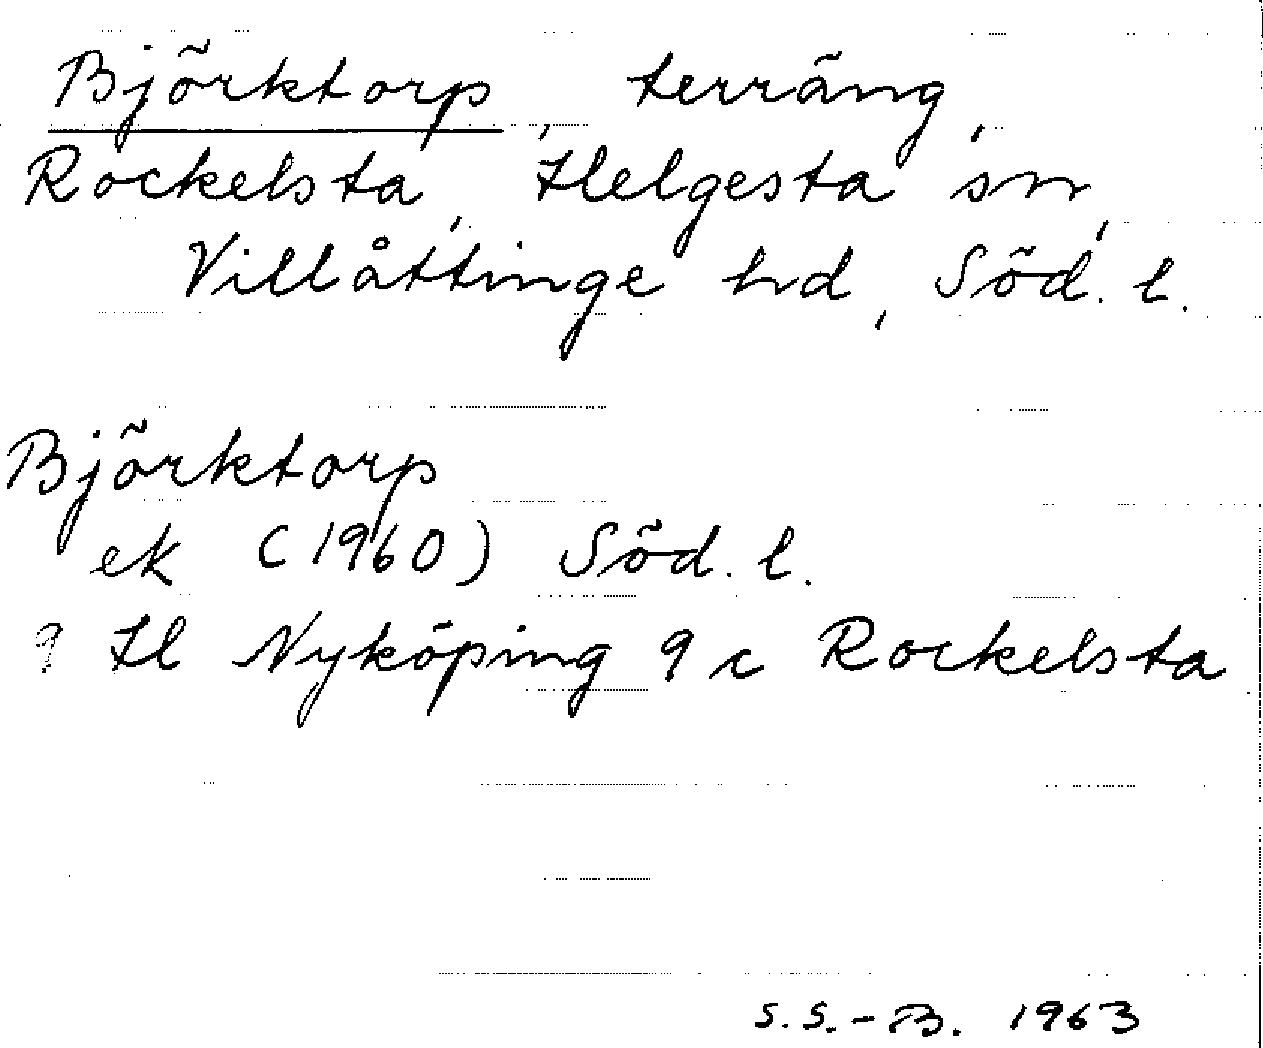 Björktorp, terräng,
Rockelsta, Helgesta sn,
Villåttinge hd, Söd. l.
Björktorp
ek (1960) Söd. l.
? Hl Nyköping 9 c Rockelsta
S.S.-B. 1963